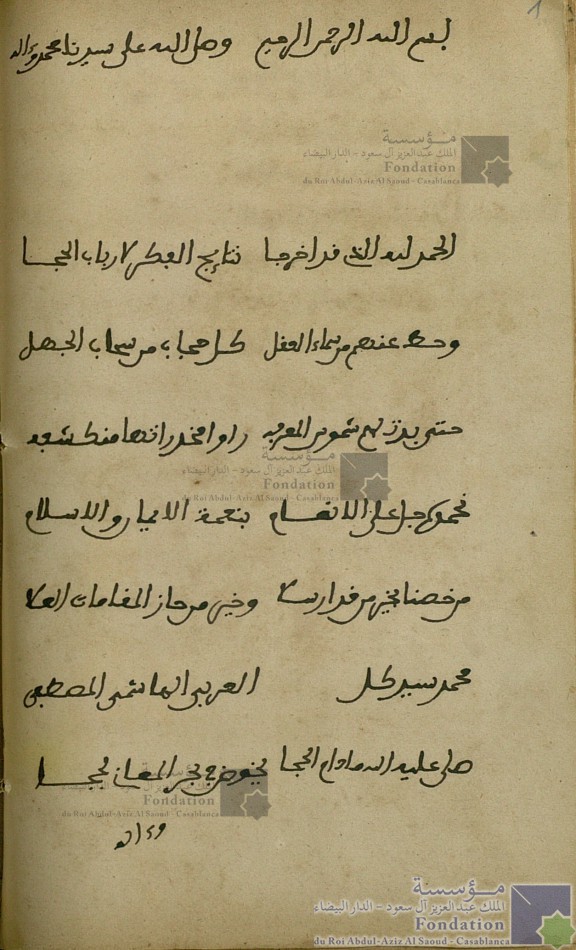 1
بسم الله الرحمن الرحيم وصلى الله على سيدنا محمد وءاله
مؤسسة
الملك عبد العزيز آل سعود - الدار البيضاء
Fondation
du Roi Abdul-Aziz Al Saoud - Casablanca
الحمد لله الذي قد اخرجا نتايج الفكر لارباب الحجا
وحط عنهم من سماء العقل كل حجاب من سحاب الجهل
حتى بدت لهم شموس المعرفه راوا مخدراتها منكشفه
مؤسسة
الملك عبد العزيز آل سعود - الدار البيضاء
Fondation
du Roi Abdul-Aziz Al Saoud - Casablanca
نحمده جل على الانعام بنعمة الايمان والاسلام
من خصنا بخير من قد ارسلا وخير من حاز المقامات العلا
محمد سيد كل العربي الهاشمي المصطفى
صلى عليه الله مادام الحجا يخوض في بحر المعاني لججا
مؤسسة
الملك عبد العزيز آل سعود - الدار البيضاء
Fondation
du Roi Abdul-Aziz Al Saoud - Casablanca
وءاله
مؤسسة
الملك عبد العزيز آل سعود - الدار البيضاء
Fondation
du Roi Abdul-Aziz Al Saoud - Casablanca